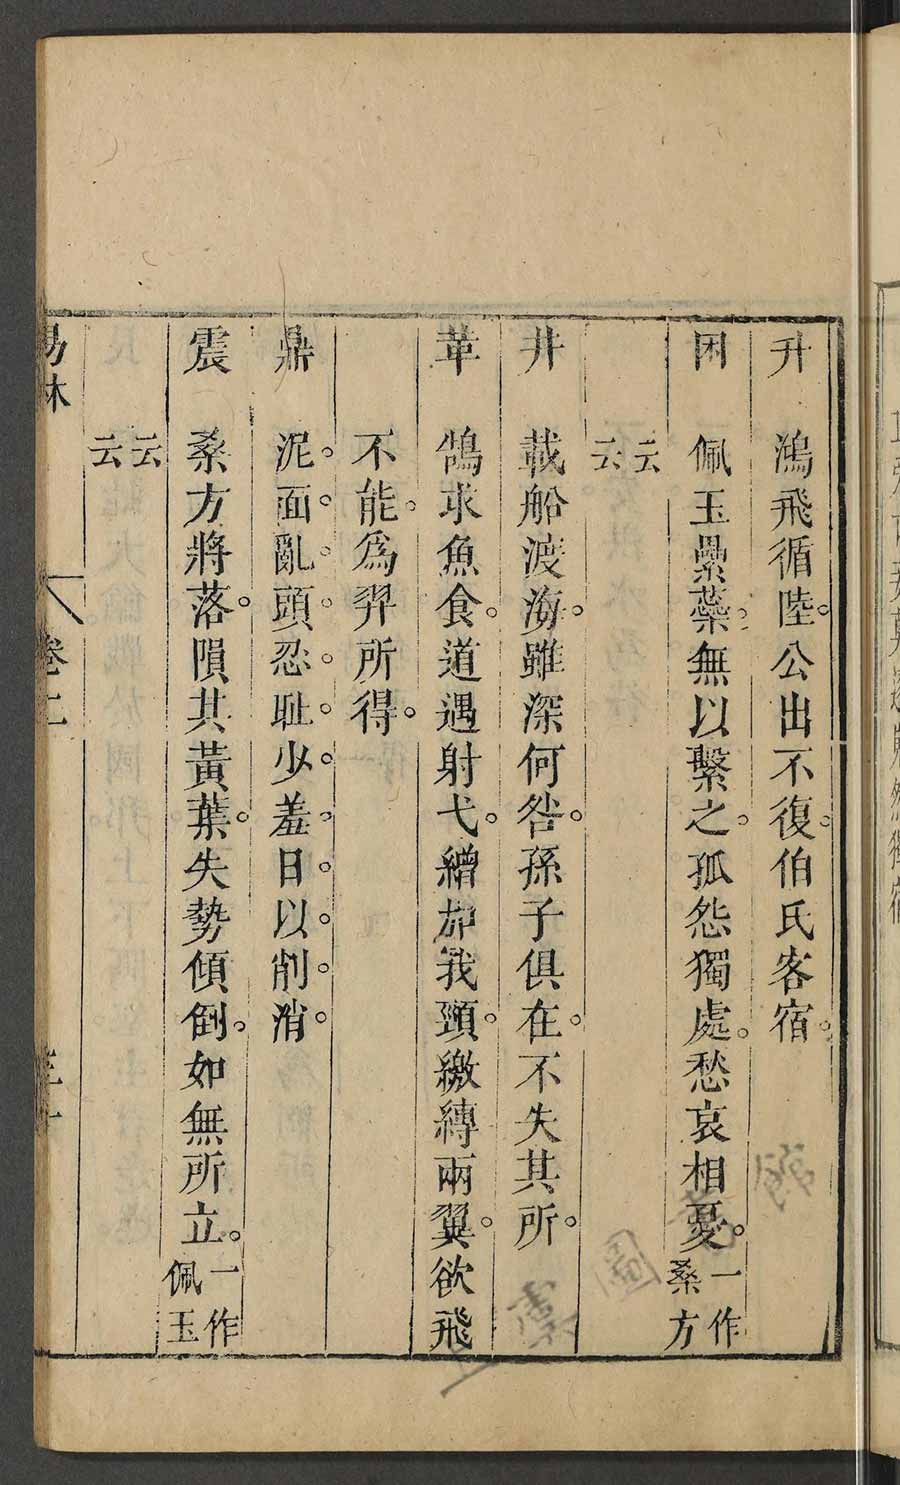 升 鴻飛循陸。公出不復。伯氏客宿。
困 佩玉纍蘂。無以繫之。孤怨獨處。愁哀相憂。一作桑方
云云
井 載船渡海。雖深何咎。孫子俱在。不失其所。
革 鵠求魚食。道遇射弋。繒加我頸。繳縳兩翼。欲飛
不能。爲羿所得。
鼎 泥。面。亂。頭。忍。耻。少。羞。日。以。削。消。
震 桑方將落。隕其黃葉。失勢傾倒。如無所立。一作佩玉
云云
易林 卷二